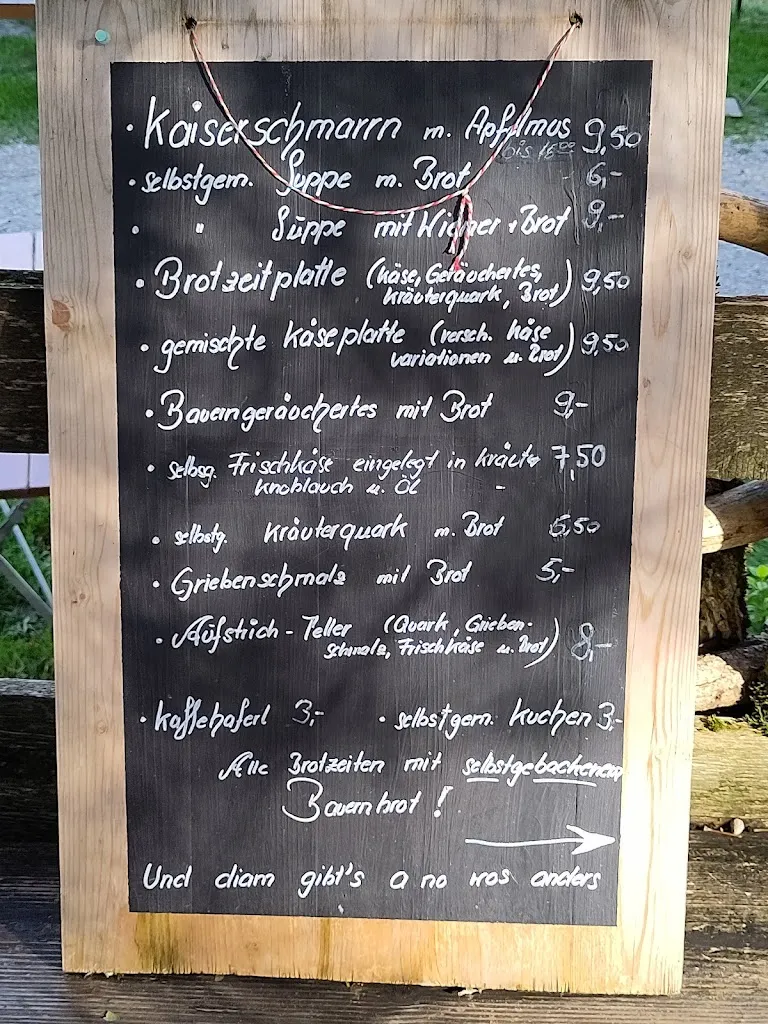 · Kaiserschmarrn m. Apfelmus 9,50
bis 15⁰⁰
· selbstgem. Suppe m. Brot - 6,-
· " Suppe mit Wiener + Brot 9,-
· Brotzeitplatte (Käse, Geräuchertes, 9,50
Kräuterquark, Brot)
· gemischte Käseplatte (versch. Käse 9,50
variationen u. Brot)
· Bauerngeräuchertes mit Brot 9,-
· selbsg. Frischkäse eingelegt in Kräuter 7,50
Knoblauch u. Öl -
· selbstg. Kräuterquark m. Brot 5,50
· Griebenschmalz mit Brot 5,-
· Aufstrich-Teller (Quark, Grieben- 8,-
schmalz, Frischkäse u. Brot)
· Kaffehaferl 3,- · selbstgem. Kuchen 3,-
Alle Brotzeiten mit selbstgebackenem
Bauernbrot!
Und diam gibt's a no wos anders